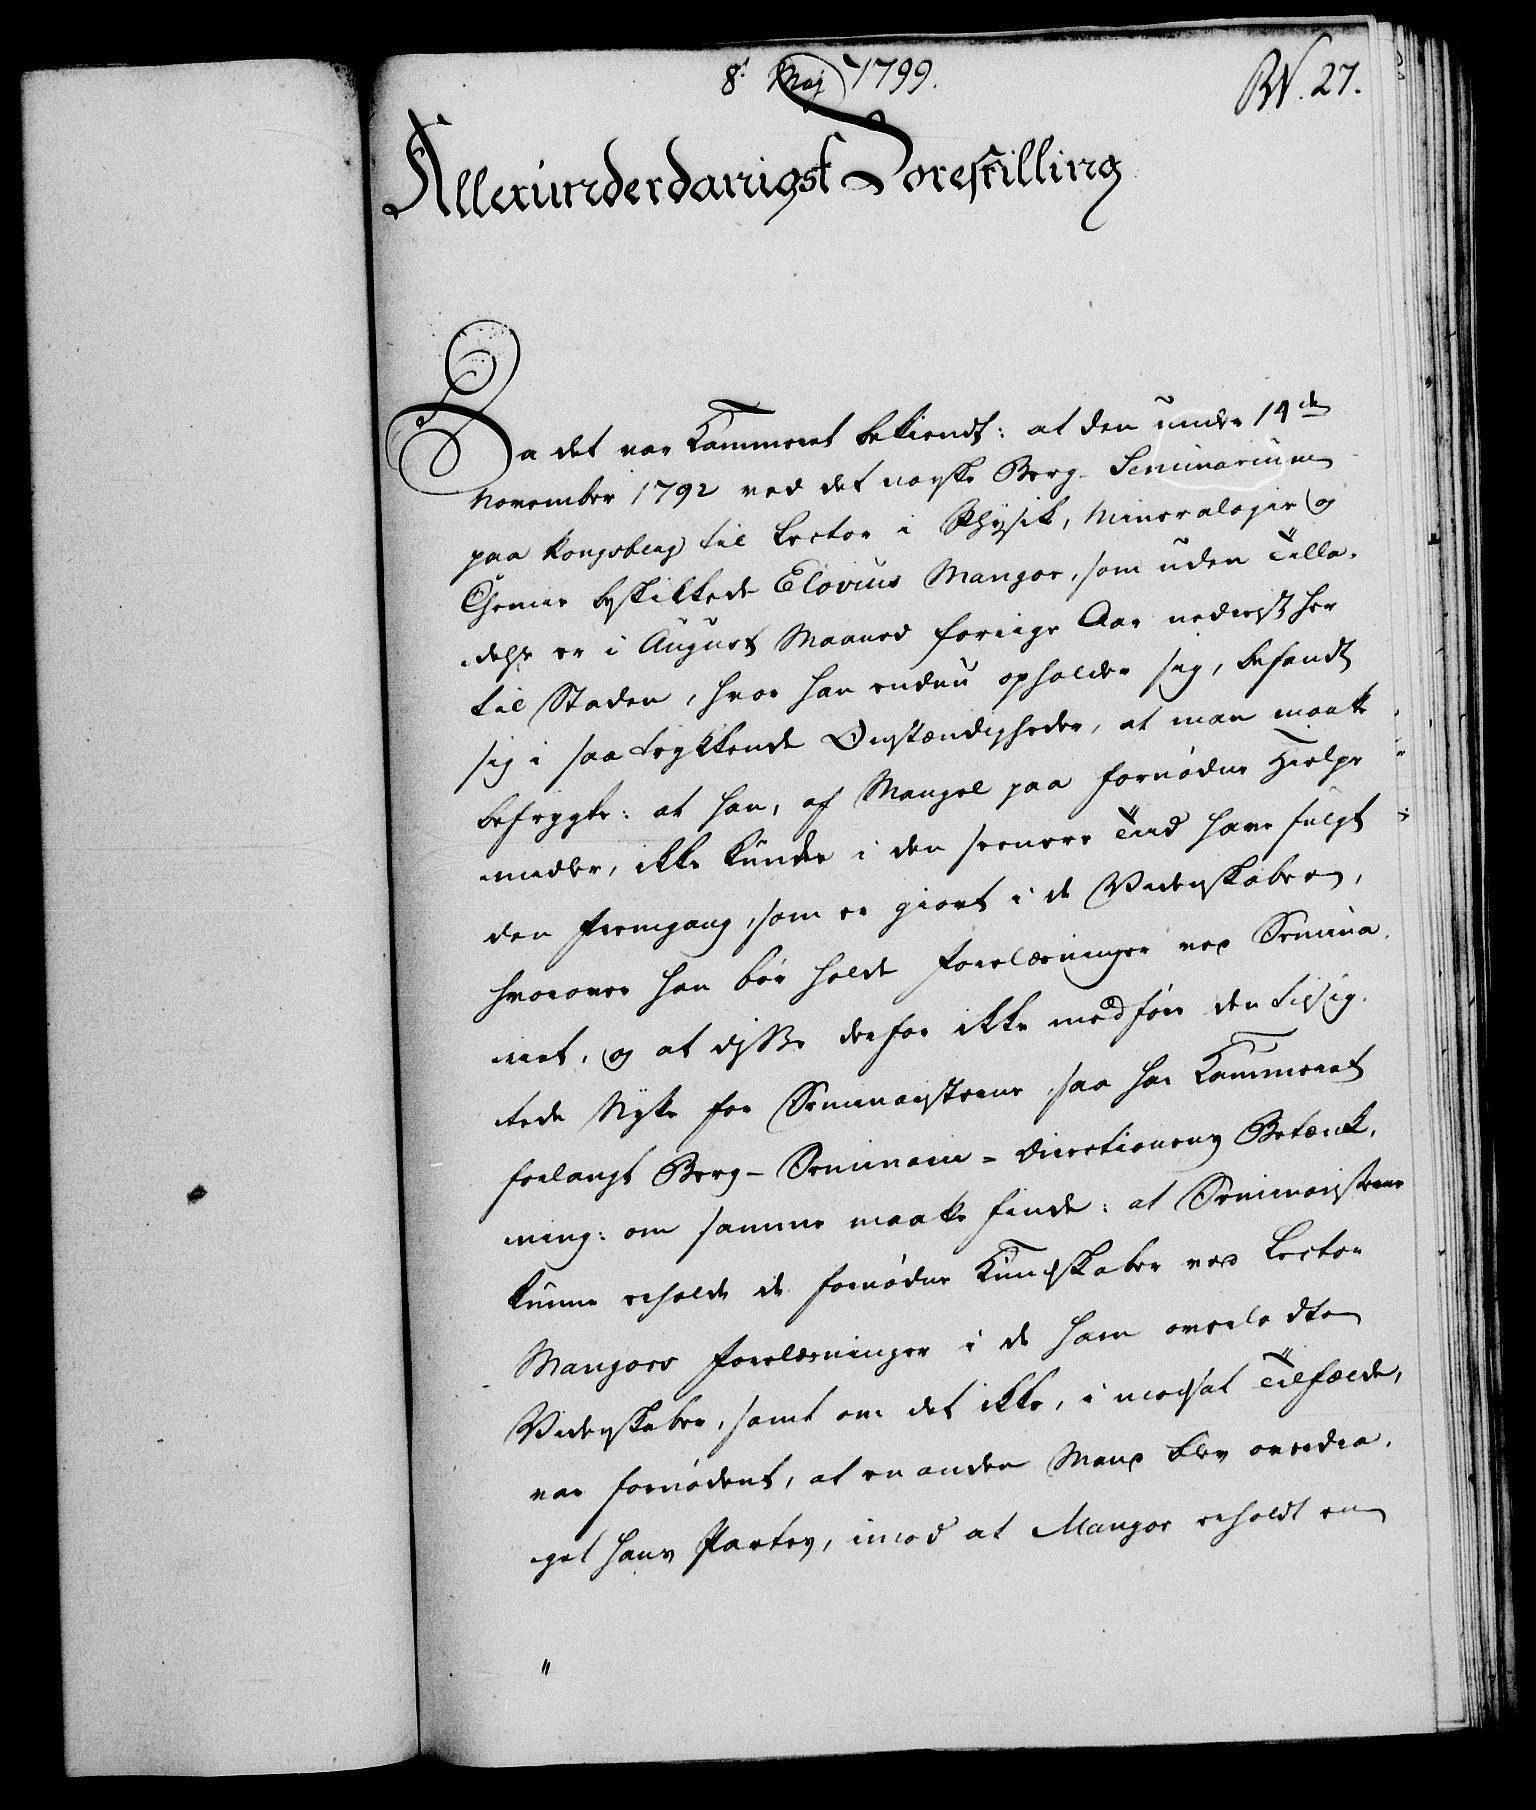 8de Maj 1799.
RN. 27.
Allerunderdanigst Forestilling
Da det var Kammeret bekiendt: at den under 14de
November 1792 ved det norske Berg-Seminarium
paa Kongsberg til Lector i Physik, Mineralogie og
Chemie beskikkede Elovius Mangor, som uden Tilla-
delse er i August Maaned forrige Aar nedreist her
til Staden, hvor han endnu opholder sig, befandt
sig i saa trykkende Omstændigheder, at man maatte
befrygte: at han, af Mangel paa fornødne Hielpe
midler, ikke kunde i den seenere Tiid have fulgt
den Fremgang, som er giort i de Videnskaber,
hvorover han bør holde Forelæsninger ved Semina-
riet, og at disse derfor ikke medføre den tilsig-
tede Nytte for Seminaristerne, saa har Kammeret
forlangt Berg-Seminarii-Directionens Betænk-
ning: om samme maatte finde: at Seminaristerne
kunne erholde de fornødne Kundskaber ved Lector
Mangors Forelæsninger i de ham overladte
Videnskaber, samt om det ikke, i modsat Tilfælde,
var fornødent, at en anden Mand blev overdra-
get hans Partes, imod at Mangor erholdt en
"